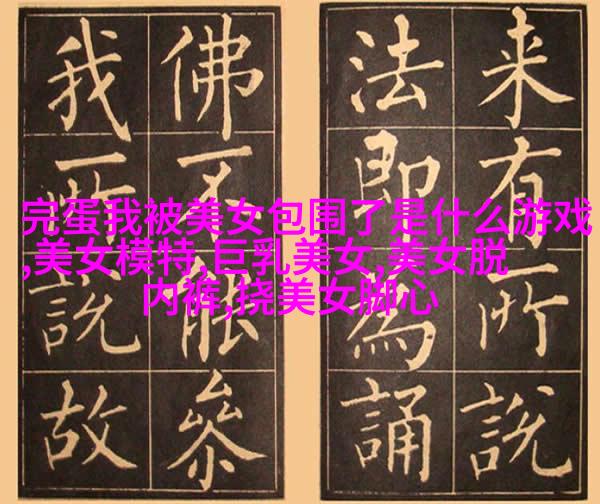 来有所說
法即為誦
佛不能參
我所説故
完蛋我被美女包围了是什么游戏
,美女模特,巨乳美女,美女脱
内裤,挠美女脚心